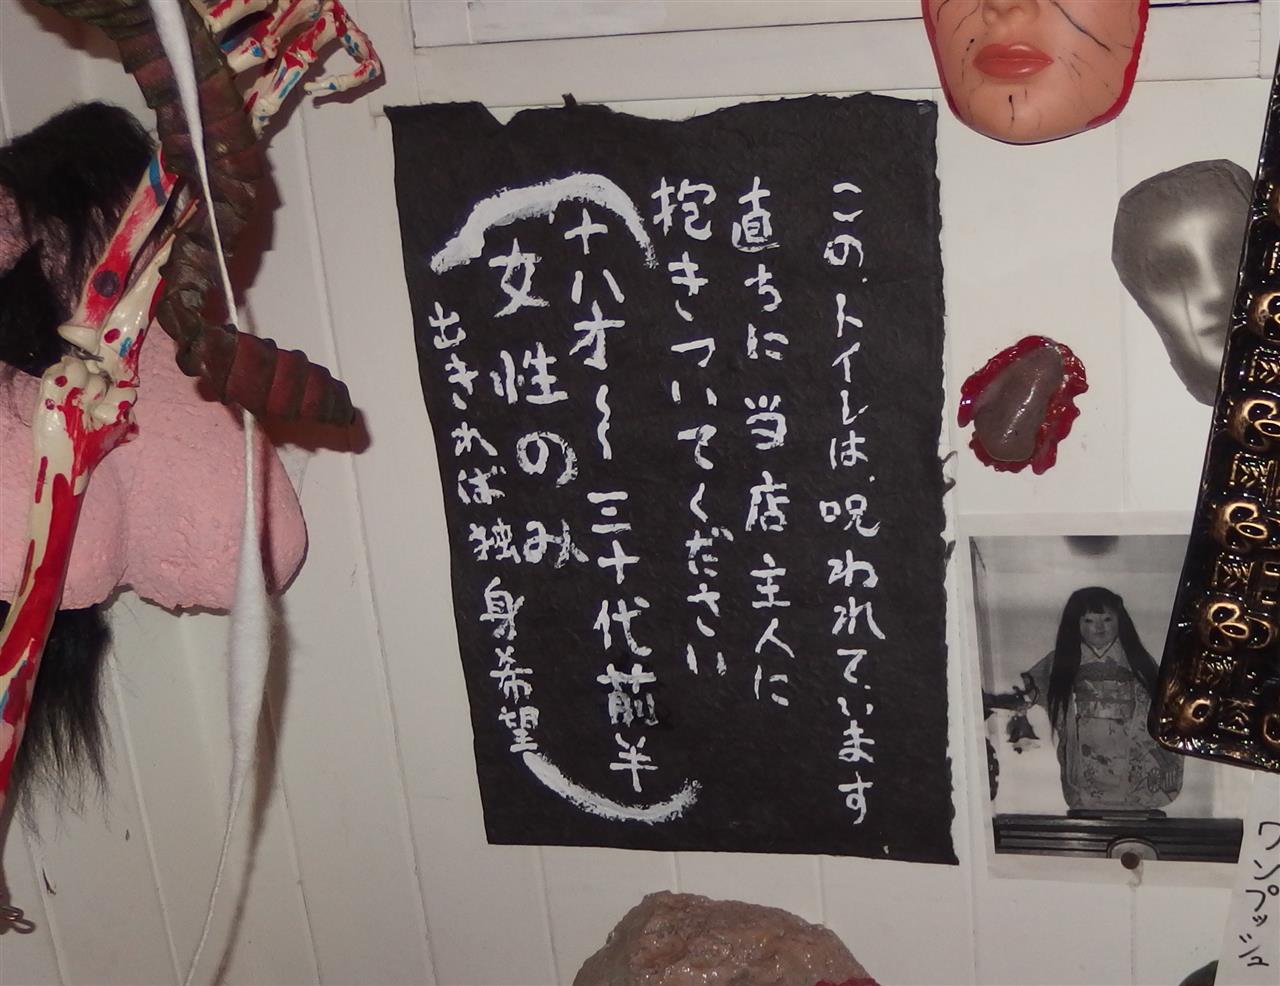 この、トイレは、呪われています
直ちに当店主人に
抱きついてください
(十八才〜三十代前半
女性のみ
出きれば独身希望)
ワンプッシュ